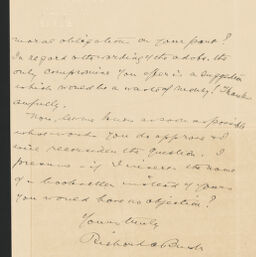 moral obligation on your part?
In regard to the wording of the adobe. the
only compromise you offer is a suggestion
which would be a waste of money! Thank
awfully.
Now, let me know as soon as possible
what words you do approve & I
will reconsider the question. I
presume - if I use the name
of a bookseller instead of yours
you would have no objection?
Yours truly
Richard